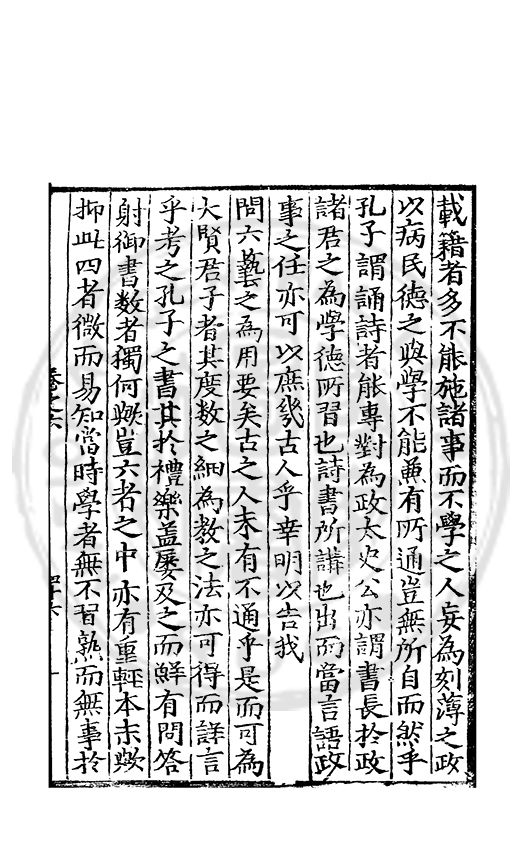 載籍者多不能施諸事而不學之人妄為刻薄之政
以病民德之與學不能兼有所通豈無所自而然乎
孔子謂誦詩者能專對為政太史公亦謂書長於政
諸君之為學德所習也詩書所講也出而當言語政
事之任亦可以庶幾古人乎幸明以告我
問六藝之為用要矣古之人未有不通乎是而可為
大賢君子者其度數之細為教之法亦可得而詳言
乎考之孔子之書其於禮樂盖屡及之而鮮有問答
射御書数者獨何歟豈六者之中亦有重輕本末歟
抑此四者微而易知當時學者無不習熟而無事於
卷之六